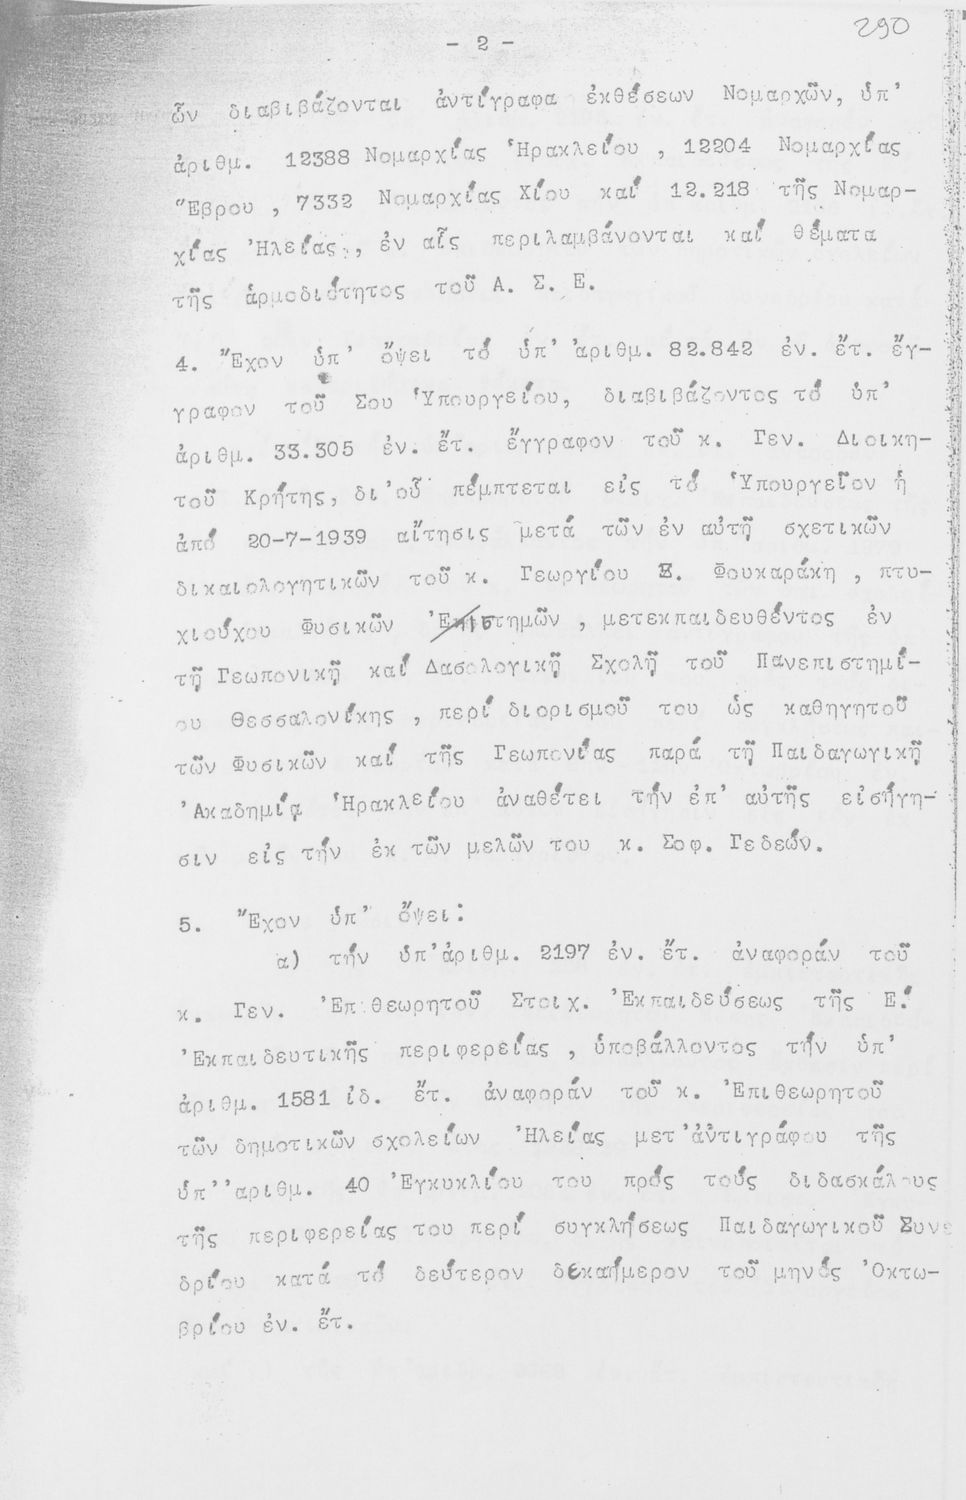 290
- 2 -
ὧν διαβιβάζονται ἀντίγραφα ἐκθέσεων Νομαρχῶν, ὑπ'
ἀριθμ. 12388 Νομαρχίας Ἡρακλείου , 12204 Νομαρχίας
Ἕβρου , 7332 Νομαρχίας Χίου καί 12.218 τῆς Νομαρ-
χίας Ἠλείας, ἐν αἷς περιλαμβάνονται καί θέματα
τῆς ἁρμοδιότητος τοῦ Α. Σ. Ε.
4. Ἔχον ὑπ' ὄψει τό ὑπ' ἀριθμ. 82.842 ἐν. ἔτ. ἔγ-
γραφον τοῦ Σου Ὑπουργείου, διαβιβάζοντος τό ὑπ'
ἀριθμ. 33.305 ἐν. ἔτ. ἔγγραφον τοῦ κ. Γεν. Διοικη-
τοῦ Κρήτης, δι'οὗ πέμπτεται εἰς τό Ὑπουργεῖον ἡ
ἀπό 20-7-1939 αἴτησις μετά τῶν ἐν αὐτῇ σχετικῶν
δικαιολογητικῶν τοῦ κ. Γεωργίου Ξ. Φουκαράκη , πτυ-
χιούχου Φυσικῶν Ἐπιστημῶν , μετεκπαιδευθέντος ἐν
τῇ Γεωπονικῇ καί Δασολογικῇ Σχολῇ τοῦ Πανεπιστημί-
ου Θεσσαλονίκης , περί διορισμοῦ του ὡς καθηγητοῦ
τῶν Φυσικῶν καί τῆς Γεωπονίας παρά τῇ Παιδαγωγικῇ
Ἀκαδημίᾳ Ἡρακλείου ἀναθέτει τήν ἐπ' αὐτῆς εἰσήγη-
σιν εἰς τήν ἐκ τῶν μελῶν του κ. Σοφ. Γεδεών.
5. Ἔχον ὑπ' ὄψει:
α) τήν ὑπ'ἀριθμ. 2197 ἐν. ἔτ. ἀναφοράν τοῦ
κ. Γεν. Ἐπιθεωρητοῦ Στοιχ. Ἐκπαιδεύσεως τῆς Ε.'
Ἐκπαιδευτικῆς περιφερείας , ὑποβάλλοντος τήν ὑπ'
ἀριθμ. 1581 ἰδ. ἔτ. ἀναφοράν τοῦ κ. Ἐπιθεωρητοῦ
τῶν δημοτικῶν σχολείων Ἠλείας μετ'ἀντιγράφου τῆς
ὑπ''αριθμ. 40 Ἐγκυκλίου του πρός τούς διδασκάλους
τῆς περιφερείας του περί συγκλήσεως Παιδαγωγικοῦ Συνε
δρίου κατά τό δεύτερον δεκαήμερον τοῦ μηνός Ὀκτω-
βρίου ἐν. ἔτ.